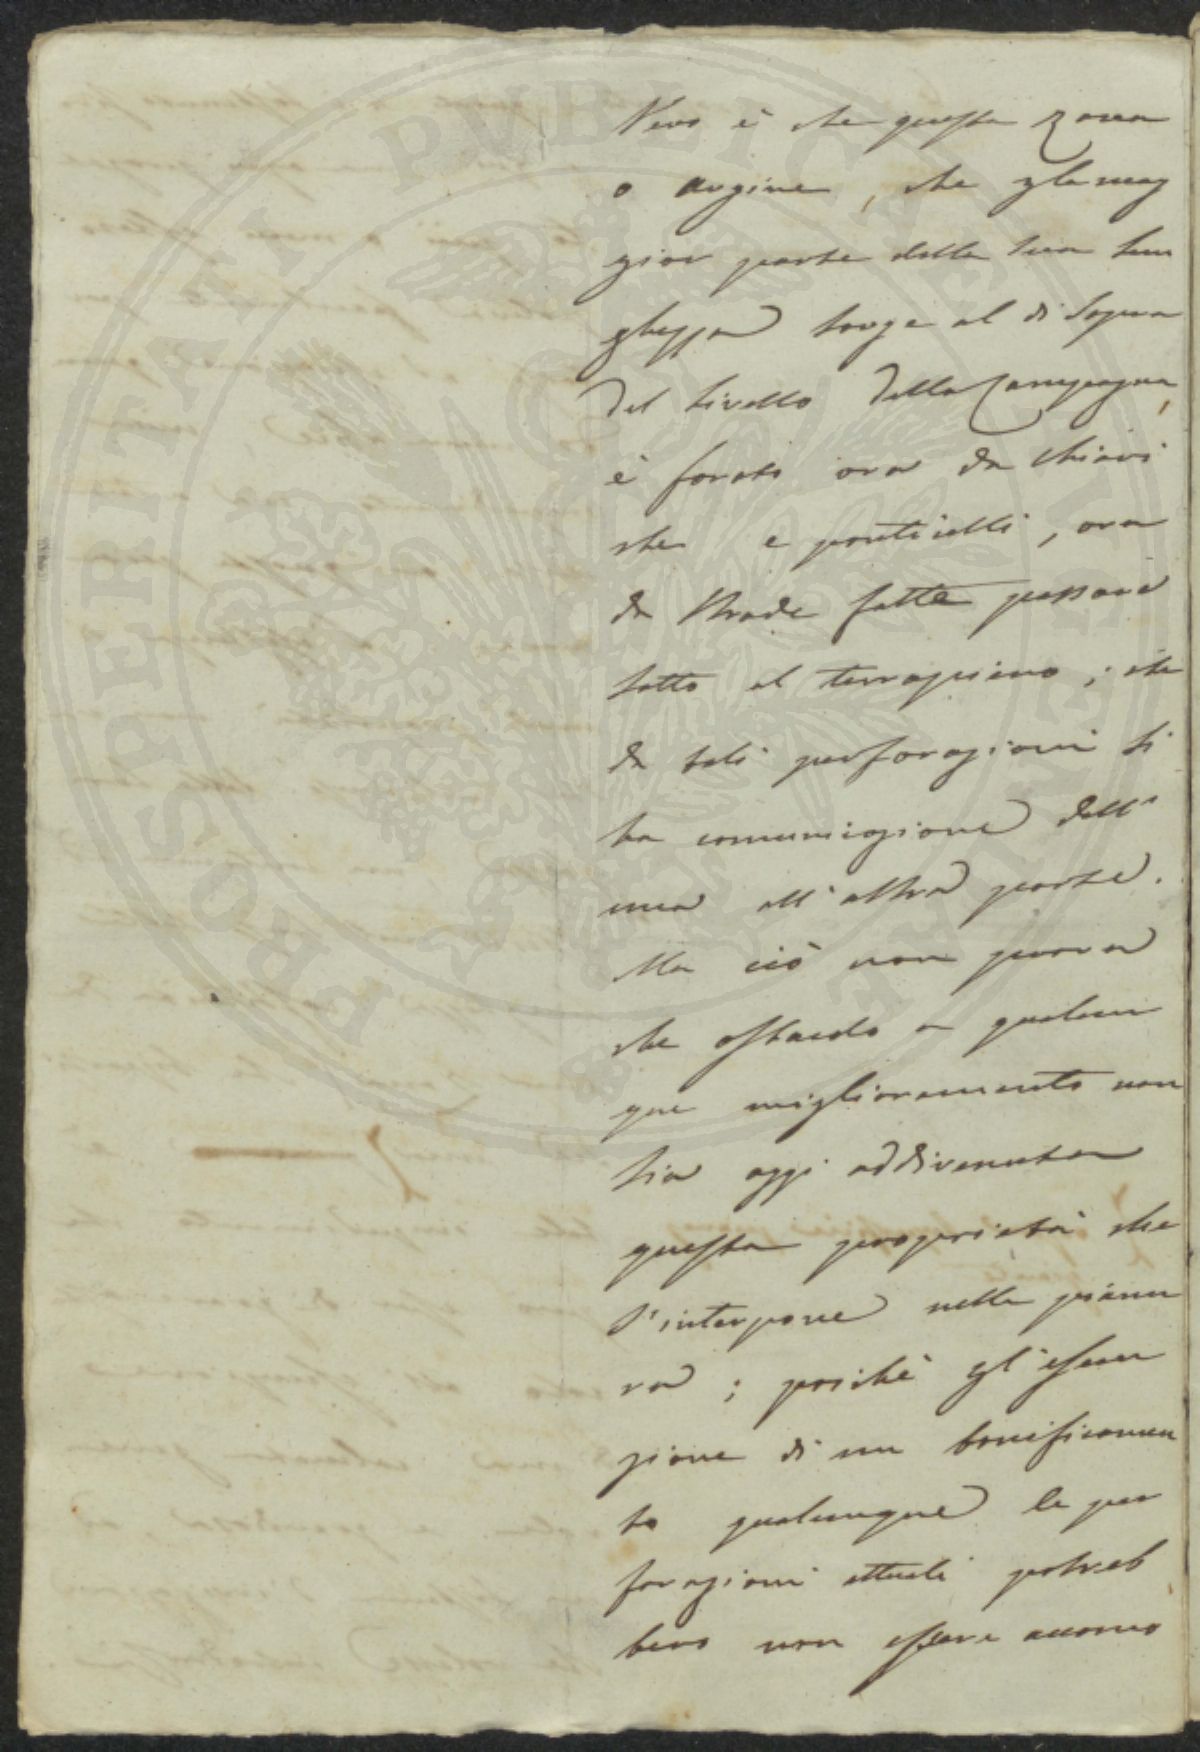 Vero è che questa zona
o argine, che p la mag
gior parte della sua lun
ghezza sorge al di sopra
del livello della Campagna,
è forato ora da chiavi
che e ponticelli, ora
da strade fatte passare
sotto al terrapieno; che
da tali perforazioni si
ha comunicazione dell'
una all'altra parte.
Ma ciò non prova
che ostacolo a qualun
que miglioramento non
sia oggi addivenuta
questa proprietà che
s'interpone nella pianu
ra; poichè all'esecu
zione di un bonificamen
to qualunque le per
forazioni attuali potreb
bero non essere accomo
PROSPERITATI PVBLICAE